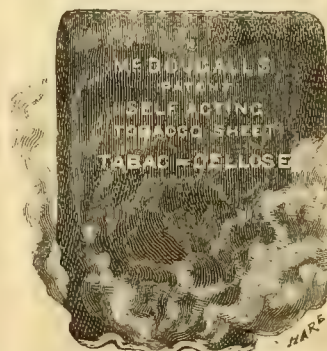 McDOUGALL'S
PATENT
SELF ACTING
TOBACCO SHEET
TABAC-CELLOSE
HARE